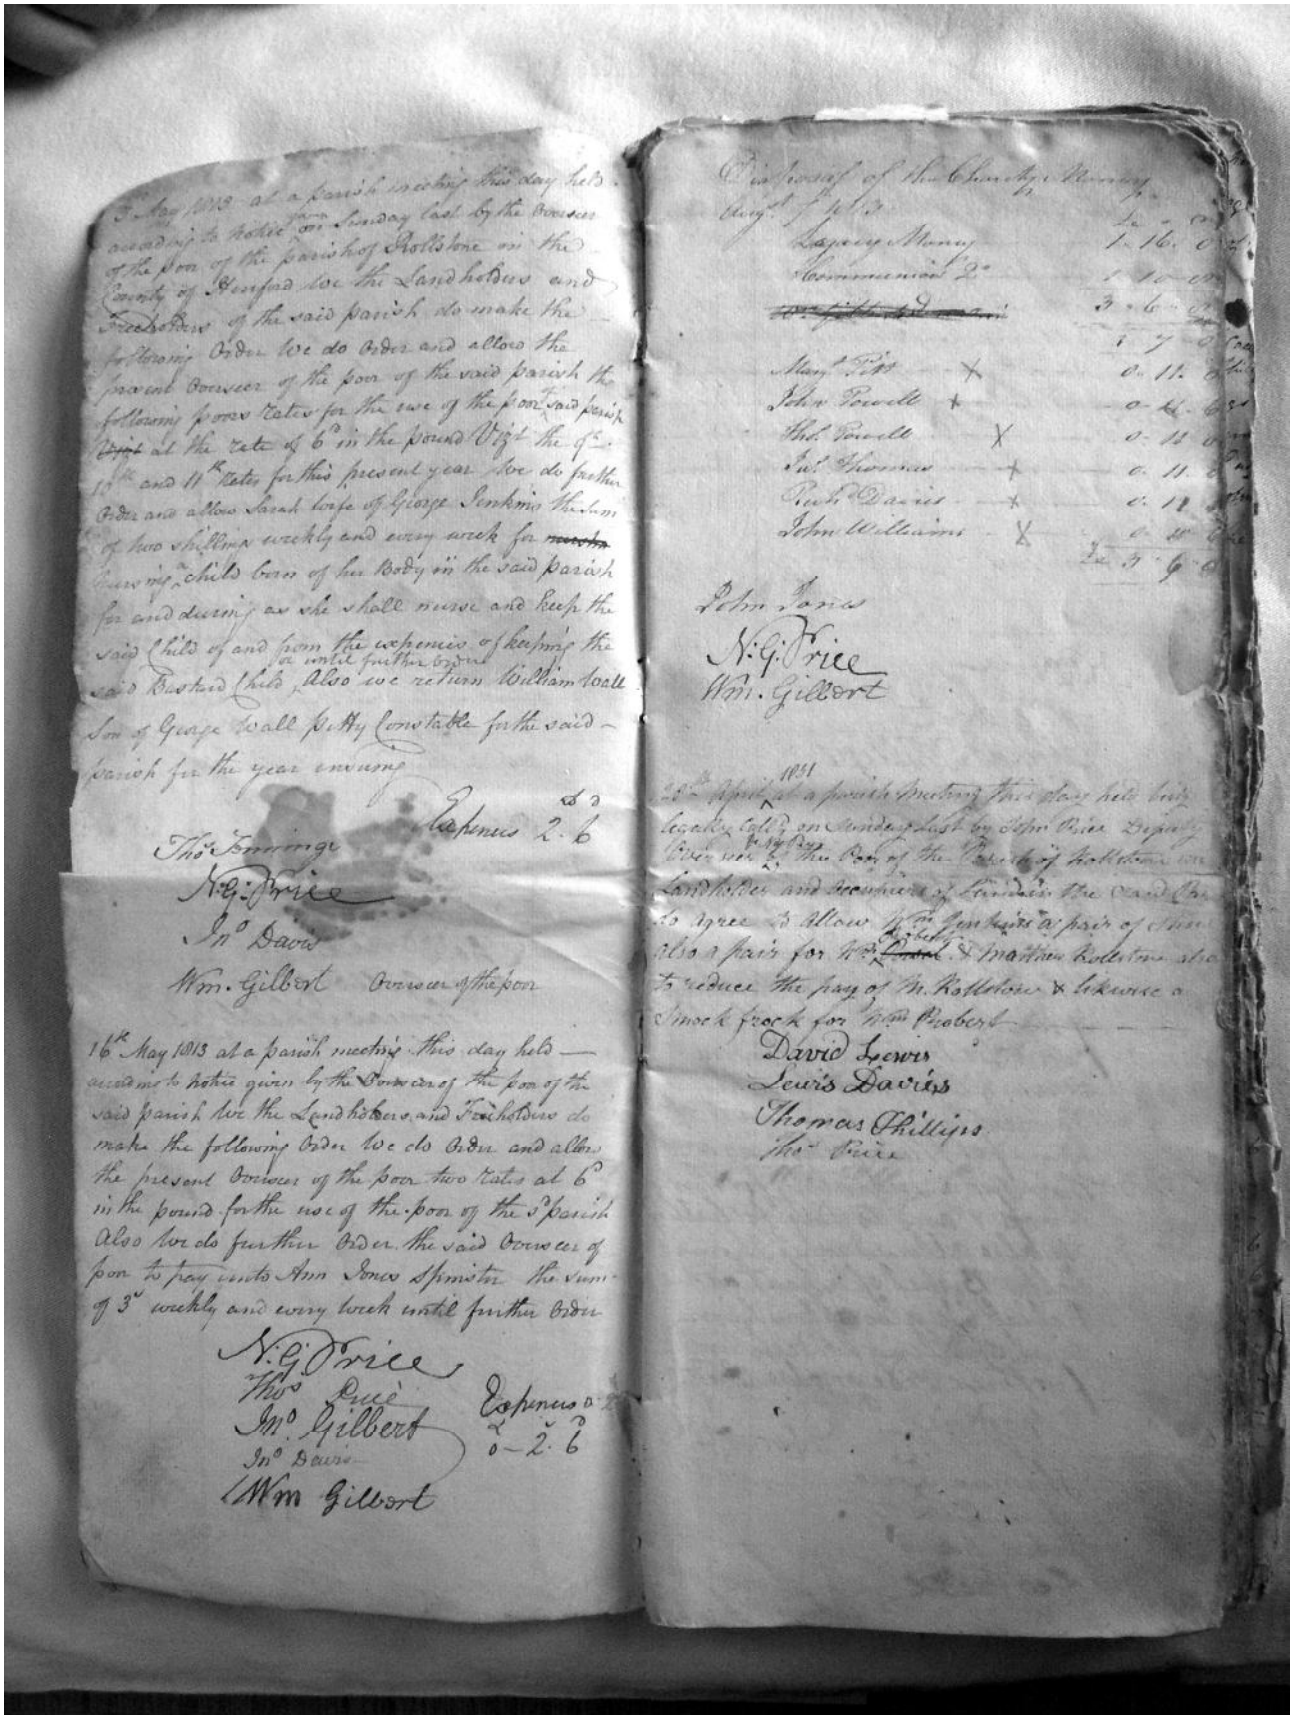 May 1813 at a parish meeting this day held
according to notice given on Sunday last by the Overseer
of the poor of the parish of Rollstone in the
County of Hereford We the Landholders and
Freeholders of the said parish do make the
following Order We do Order and allow the
present Overseer of the poor of the said parish the
following poors rates for the use of the poor of said parish
at the rate of 6d in the pound Vizt the 9th
10th and 11th rates for this present year We do further
Order and allow Sarah wife of George Jenkins the Sum
of two shillings weekly and every week for
nursing a child born of her Body in the said parish
for and during as she shall nurse and keep the
said Child of and from the expences of keeping the
said Bastard Child or until further Order Also we return William Wall
Son of George Wall petty Constable for the said
parish for the year ensuing
Expences 2. 6
Thos Jennings
N. G. Price
Jno Davis
Wm. Gilbert Overseer of the poor
16th May 1813 at a parish meeting this day held
according to notice given by the Overseer of the poor of the
said parish We the Landholders and Freeholders do
make the following Order We do Order and allow
the present Overseer of the poor two rates at 6d
in the pound for the use of the poor of the sd parish
Also We do further Order the said Overseer of
poor to pay unto Ann Jones Spinster the sum
of 3s weekly and every week until further Order
N. G. Price
Thos Price
Jno. Gilbert
Jno Davis
Wm Gilbert
Expences
0 - 2. 6
Disposal of the Charity Money
Legacy Money 1. 16. 0
Communion Do 1 10
3 - 6 - 0
Margt Pitt X 0. 11.
John Powell X 0
Thos. Powell X 0.
Jno Thomas X 0. 11.
Richd Davies X 0. 11
John Williams X 0.
3 - 6 - 0
John Jones
N. G. Price
Wm. Gilbert
April 1831 at a parish Meeting this day held
legaly on Sunday Last by John Price Deputy
Overseer the Poor of the Parish of Rollstone we
Landholders and Occupiers of Land in the said
do agree to allow Wm Jenkins a pair of
also a pair for Wm Probert & Matthew Rollstone also
to reduce the pay of M. Rollstone & likewise a
Smock frock for Wm Probert
David Lewis
Lewis Davies
Thomas Phillips
Thos Price